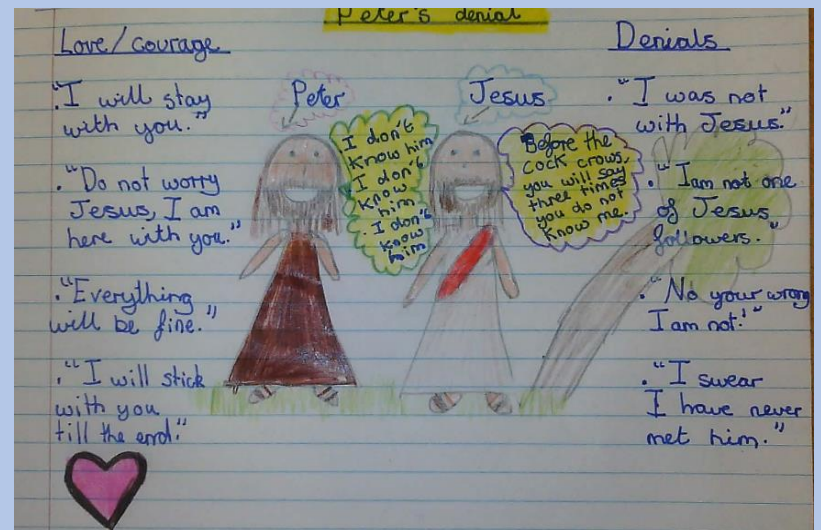 Peter's denial
Love/courage
."I will stay
with you."
. "Do not worry
Jesus, I am
here with you."
."Everything
will be fine."
."I will stick
with you
till the end."
Peter
I don't
know him
I don't
know
him
. I don't
know
him
Jesus
"Before the
cock crows,
you will say
three times
you do not
know me.
Denials
. "I was not
with Jesus."
. "I am not one
of Jesus
followers."
. "No your wrong
I am not!"
. "I swear
I have never
met him."